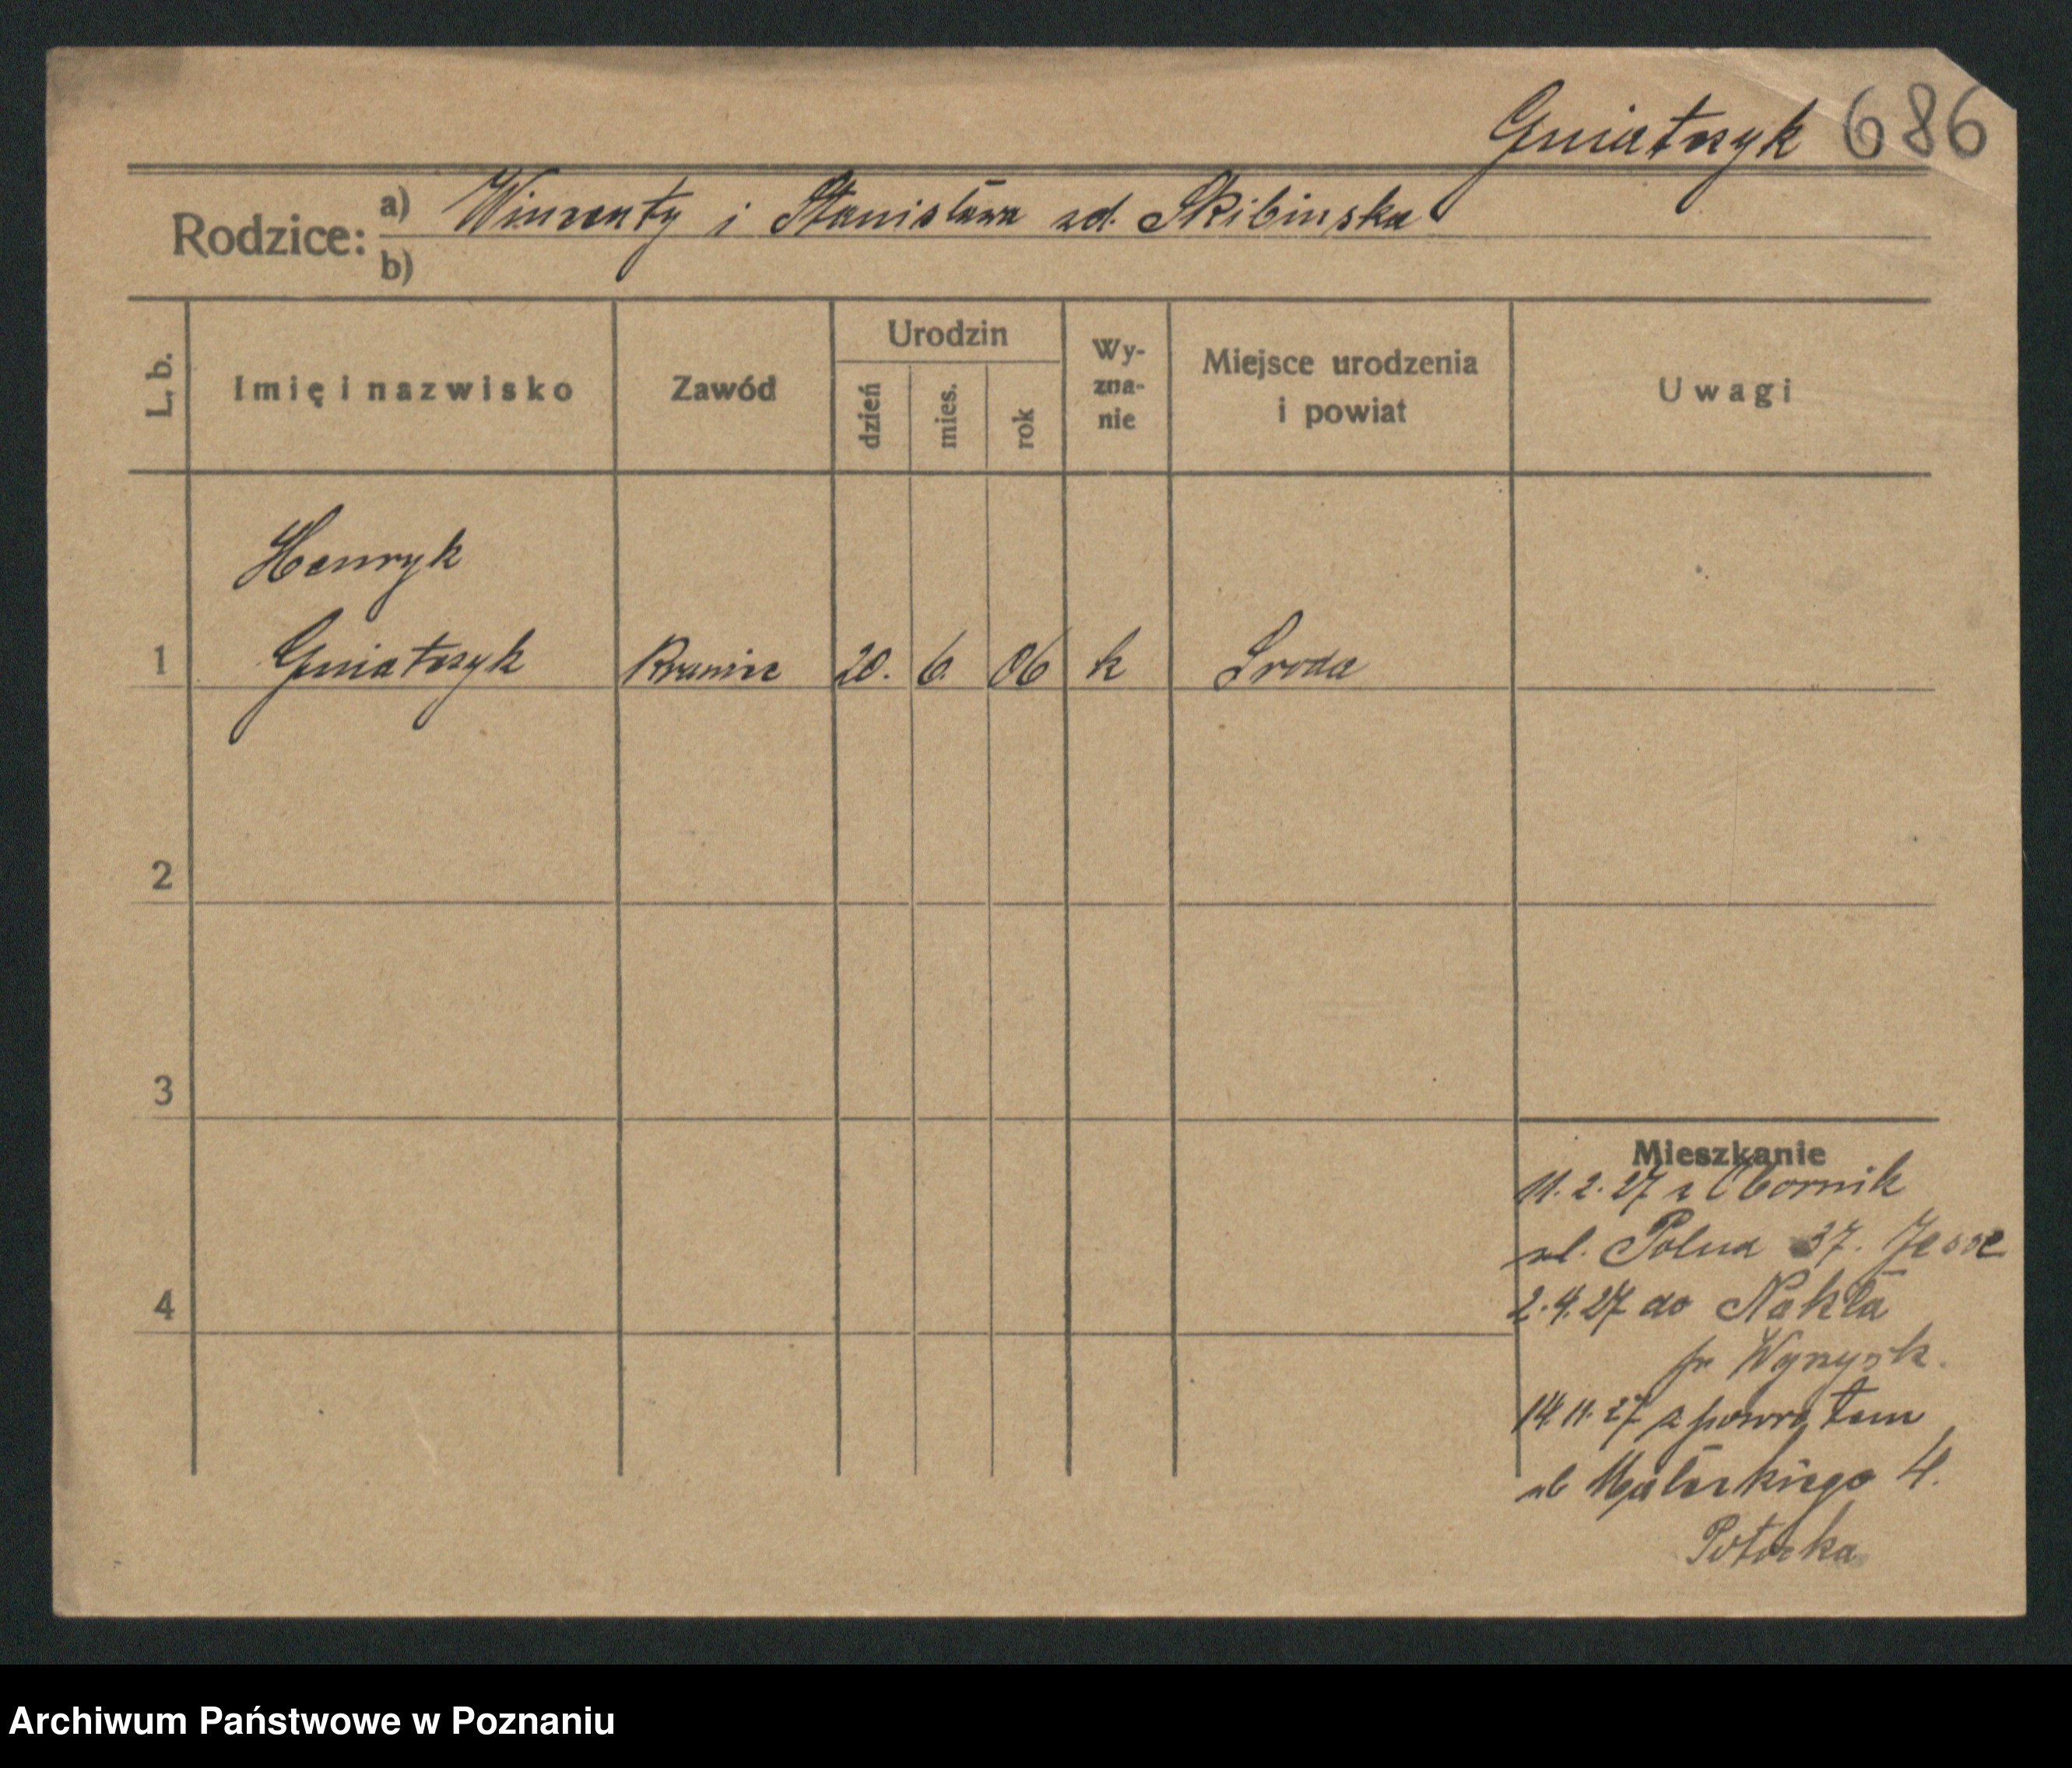 Gniatczyk 686
Rodzice: a) Wincenty i Stanisława zd. Skibinska
b)
L. b.
Imię i nazwisko
Zawód
Urodzin
dzień
mies.
rok
Wy-
zna-
nie
Miejsce urodzenia
i powiat
Uwagi
Henryk
1 Gniatczyk 20. 6. 06 k Sroda
2
3
4
Mieszkanie
11.2.27 z Obornik
ul. Polna 37.
2.4.27 do Nakła
Wyrzysk.
14.11.27 z powrotem
ul Małeckiego 4.
Potocka
Archiwum Państwowe w Poznaniu